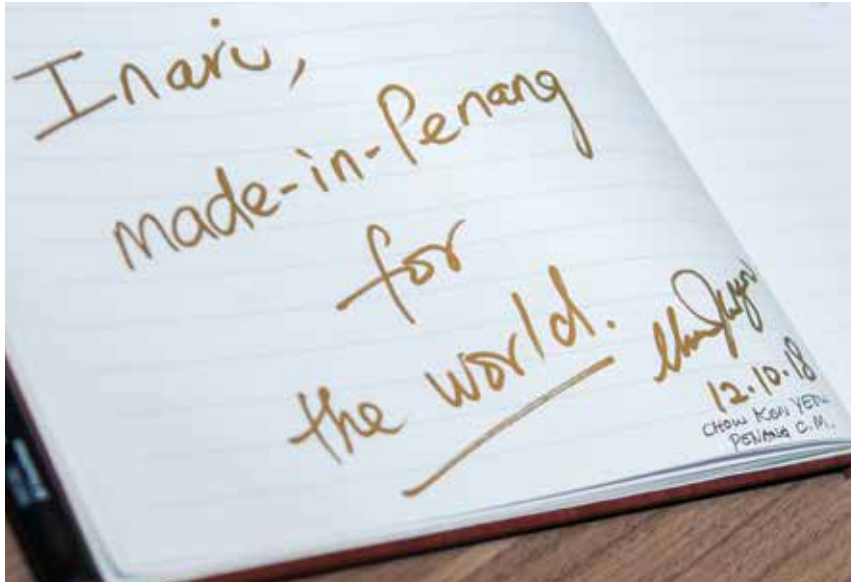 Inari,
made-in-Penang
for
the world.
12.10.18
CHOW KON YEOW
PENANG C.M.